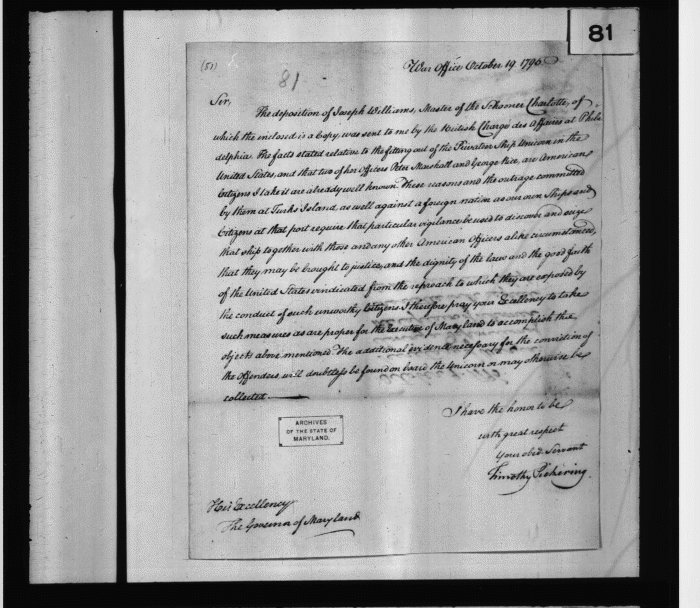 81
(51)
81
War Office, October 19. 1795.
Sir,
The deposition of Joseph Williams, Master of the Schooner Charlotte, of
which the enclosed is a Copy, was sent to me by the British Chargé des Affaires at Phila
delphia. The facts stated relative to the fitting out of the Privateer Ship Unicorn in the
United States, and that two of her Officers Peter Marshall and George Rice, are American
Citizens I take it are already well known. These reasons and the outrage committed
by them at Turks Island, as well against a foreign nation as our own Ships and
Citizens at that port require that particular vigilance be used to discover and seize
that ship together with those and any other American Officers alike circumstanced,
that they may be brought to justice, and the dignity of the laws and the good faith
of the United States vindicated from the reproach to which they are exposed by
the conduct of such unworthy Citizens. I therefore pray your Excellency to take
such measures as are proper for the Executive of Maryland to accomplish the
objects above mentioned. The additional evidence necessary for the conviction of
the Offenders will doubtless be found on board the Unicorn or may otherwise be
collected.
I have the honor to be
with great respect
your obd. Servant
Timothy Pickering.
ARCHIVES
OF THE STATE OF
MARYLAND.
His Excellency
The Governor of Maryland